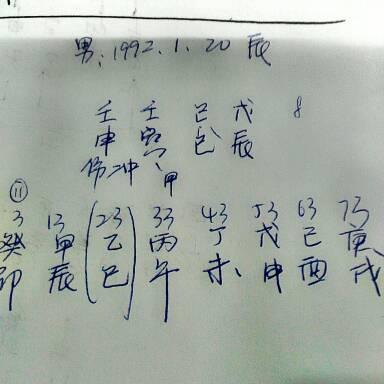 男:1992.1.20 辰
壬 壬 己 戊 8
申 寅 巳 辰
冲 甲
⑪
3 13 23 33 43 53 63 73
癸 甲 (乙 丙 丁 戊 己 庚
卯 辰 巳) 午 未 申 酉 戌